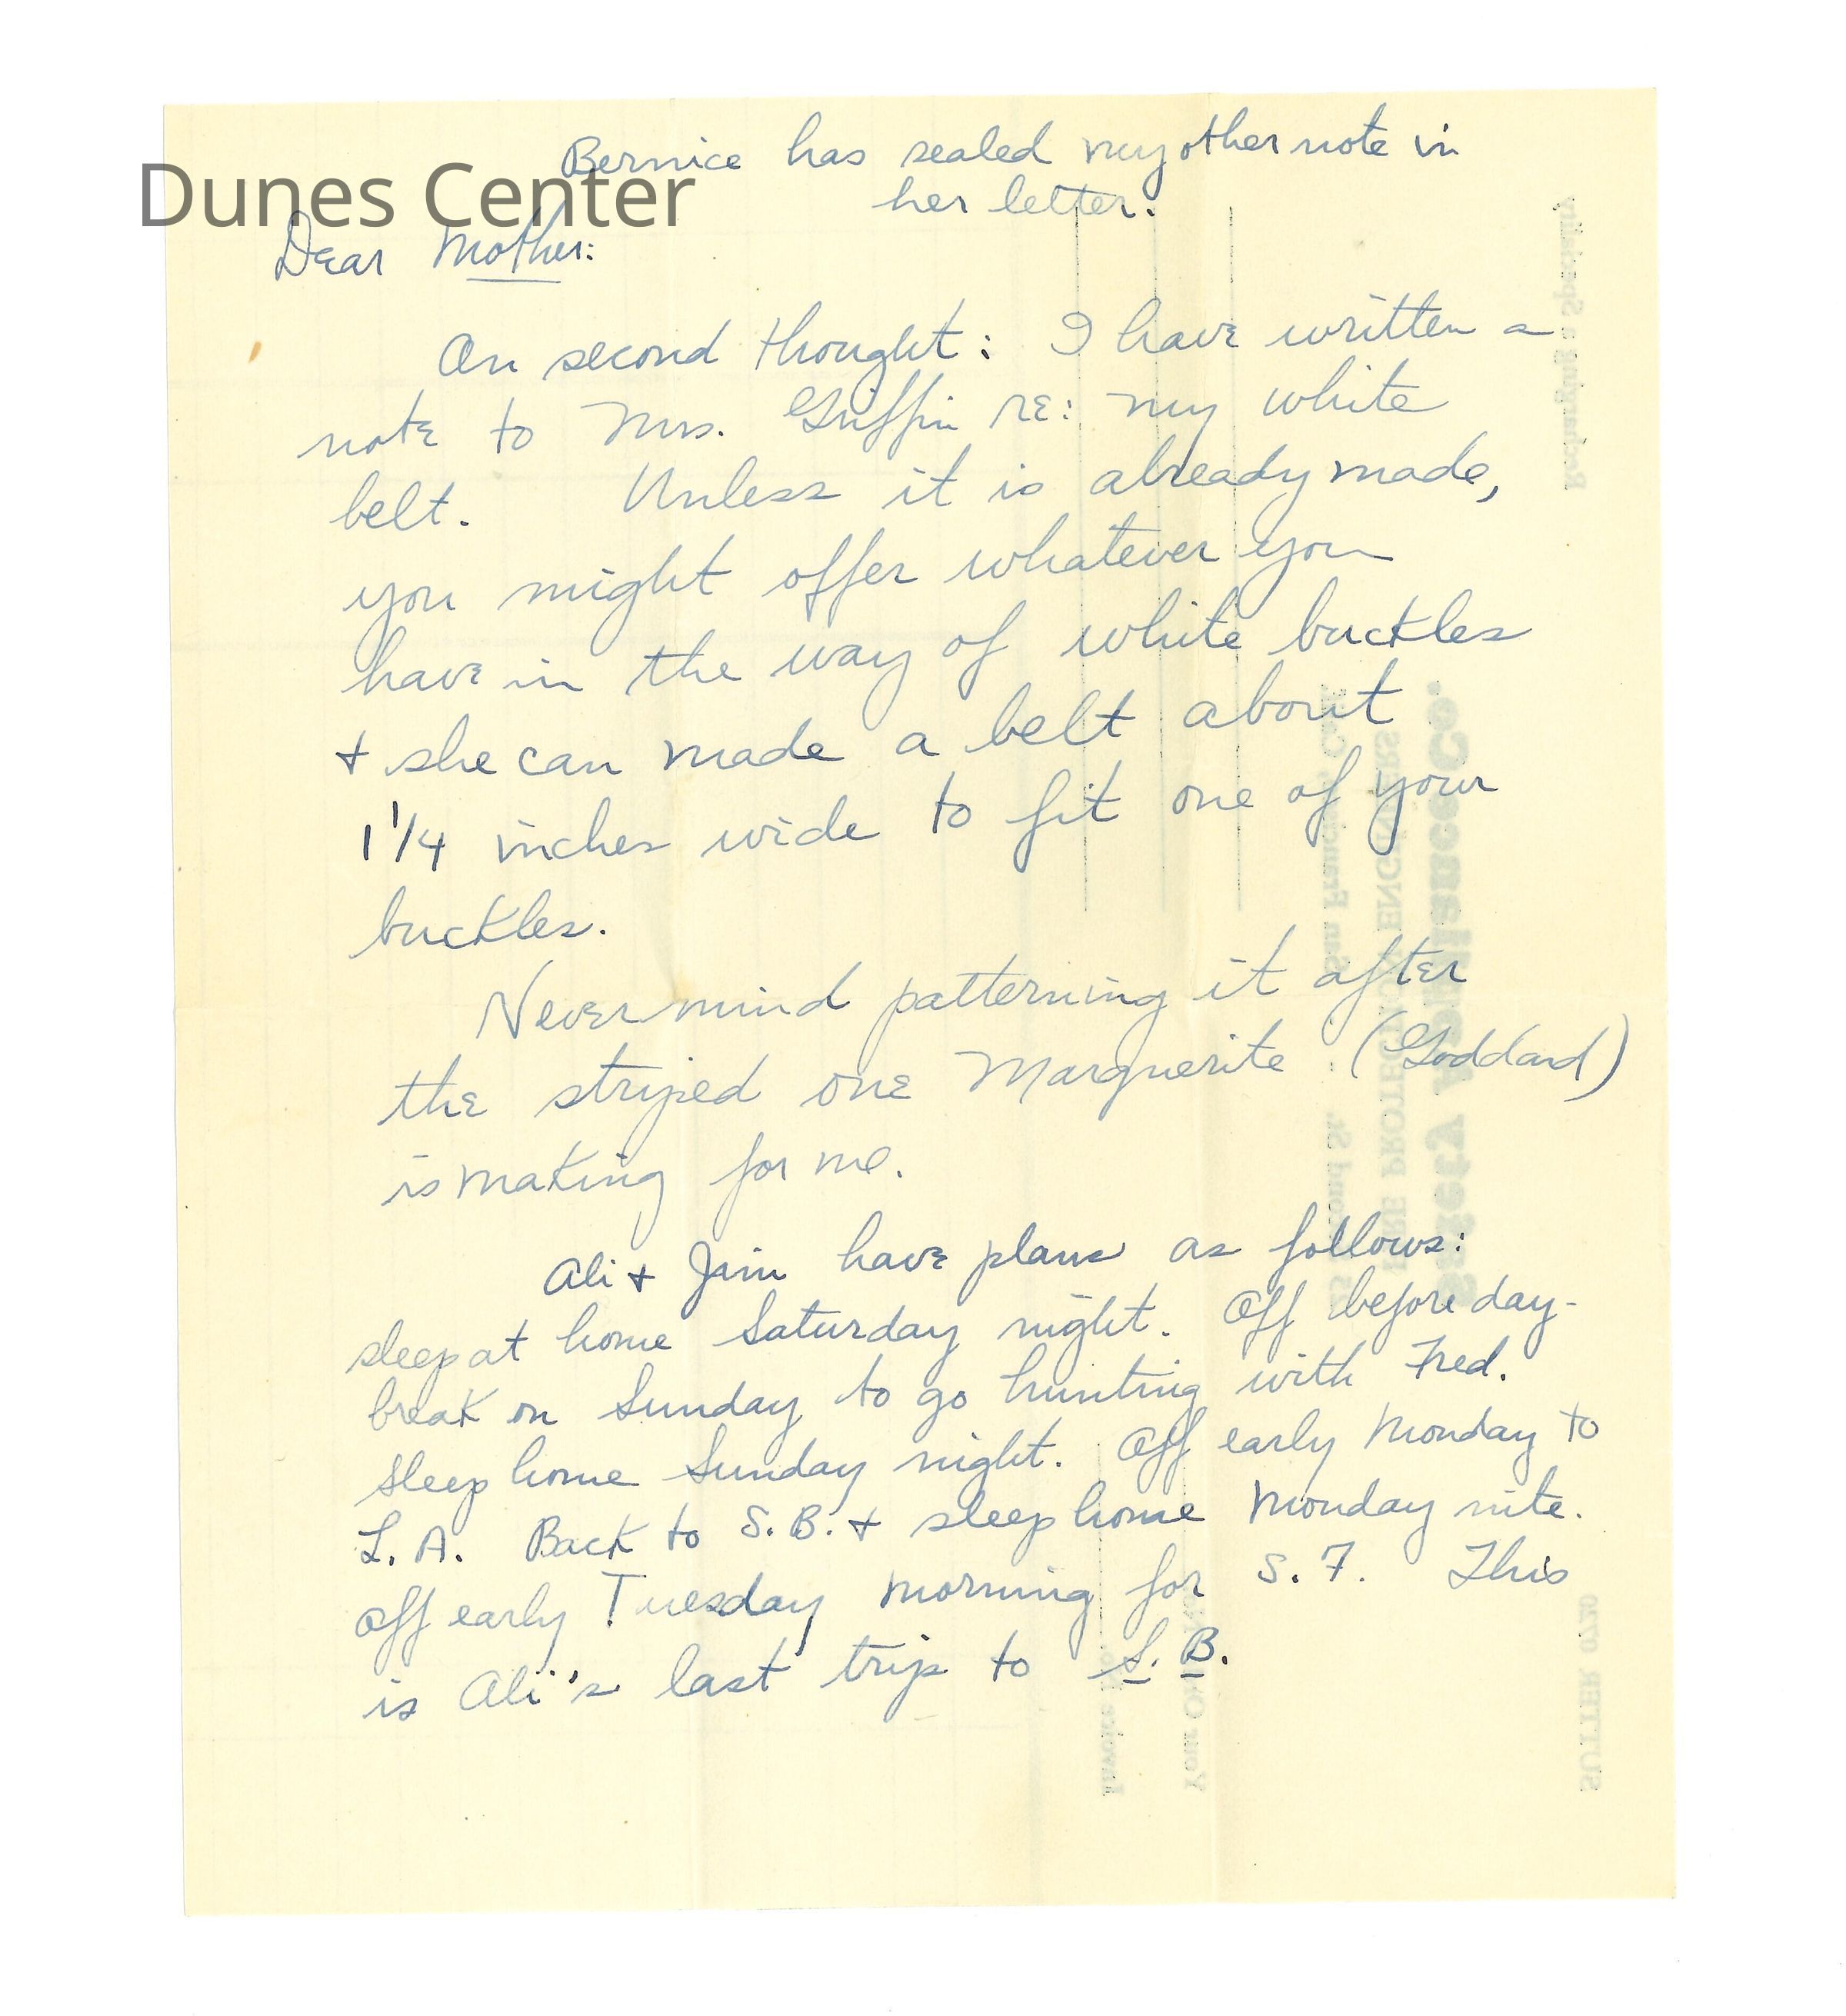 Bernice has sealed my other note in
her letter.
Dunes Center
Dear Mother:
On second thought: I have written a
note to Mrs. Griffin re: my white
belt. Unless it is already made,
you might offer whatever you
have in the way of white buckles
+ she can made a belt about
1 1/4 inches wide to fit one of your
buckles.
Never mind patterning it after
the striped one Marguerite (Goddard)
is making for me.
Ali + Jim have plans as follows:
sleep at home Saturday night. Off before day-
break on Sunday to go hunting with Fred.
Sleep home Sunday night. Off early Monday to
L. A. Back to S. B. + sleep home Monday nite.
Off early Tuesday morning for S. F. This
is Ali's last trip to S. B.
Recharging a Specialty
Safety Appliance Co.
FIRE PROTECTION ENGINEERS
San Francisco
SUTTER 0720
Invoice No.
Your Order No.